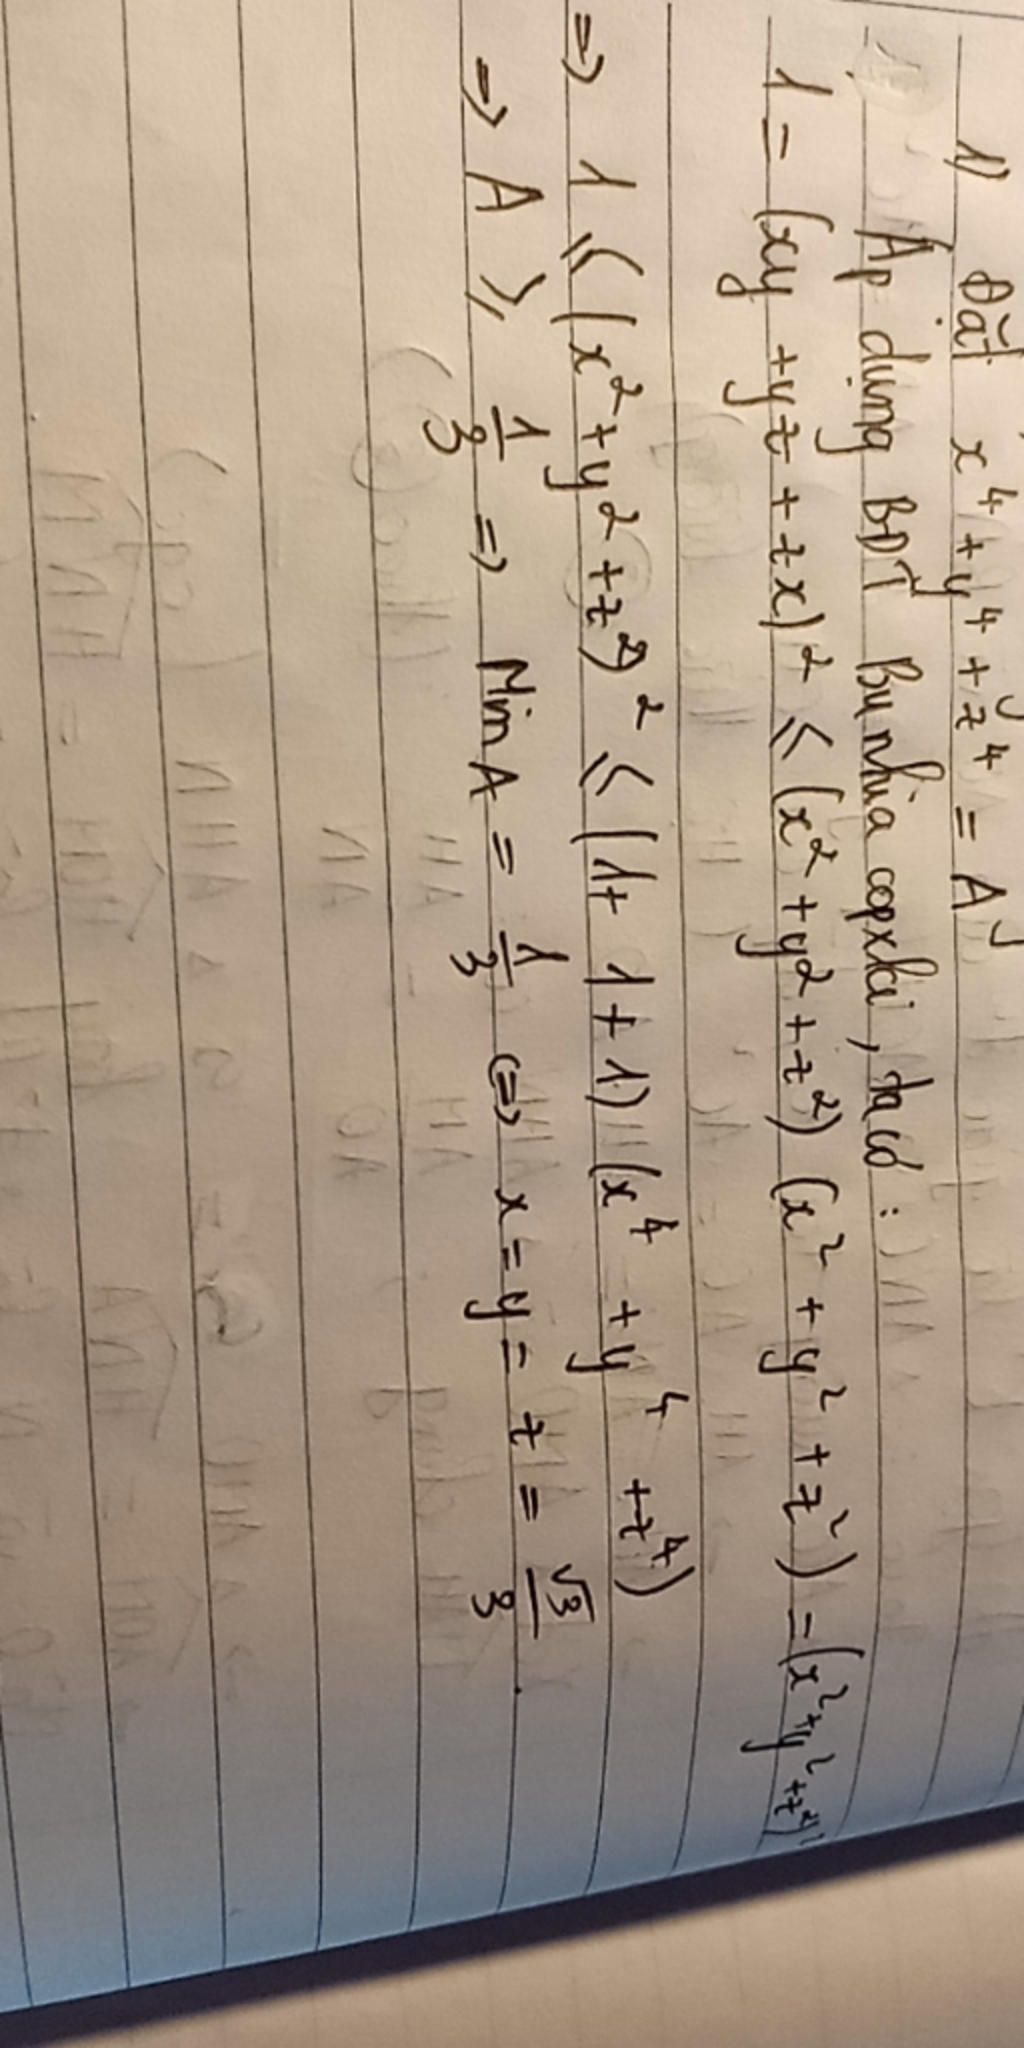 1) Đặt x⁴ + y⁴ + z⁴ = A
Áp dụng BĐT Bunhiacopxki, ta có :
1 = (xy + yz + zx)² ≤ (x² + y² + z²) (x² + y² + z²) = (x² + y² + z²)²
=> 1 ≤ (x² + y² + z²)² ≤ (1 + 1 + 1) (x⁴ + y⁴ + z⁴)
=> A ≥ 1/3 => Min A = 1/3 <=> x = y = z = √3/3 .